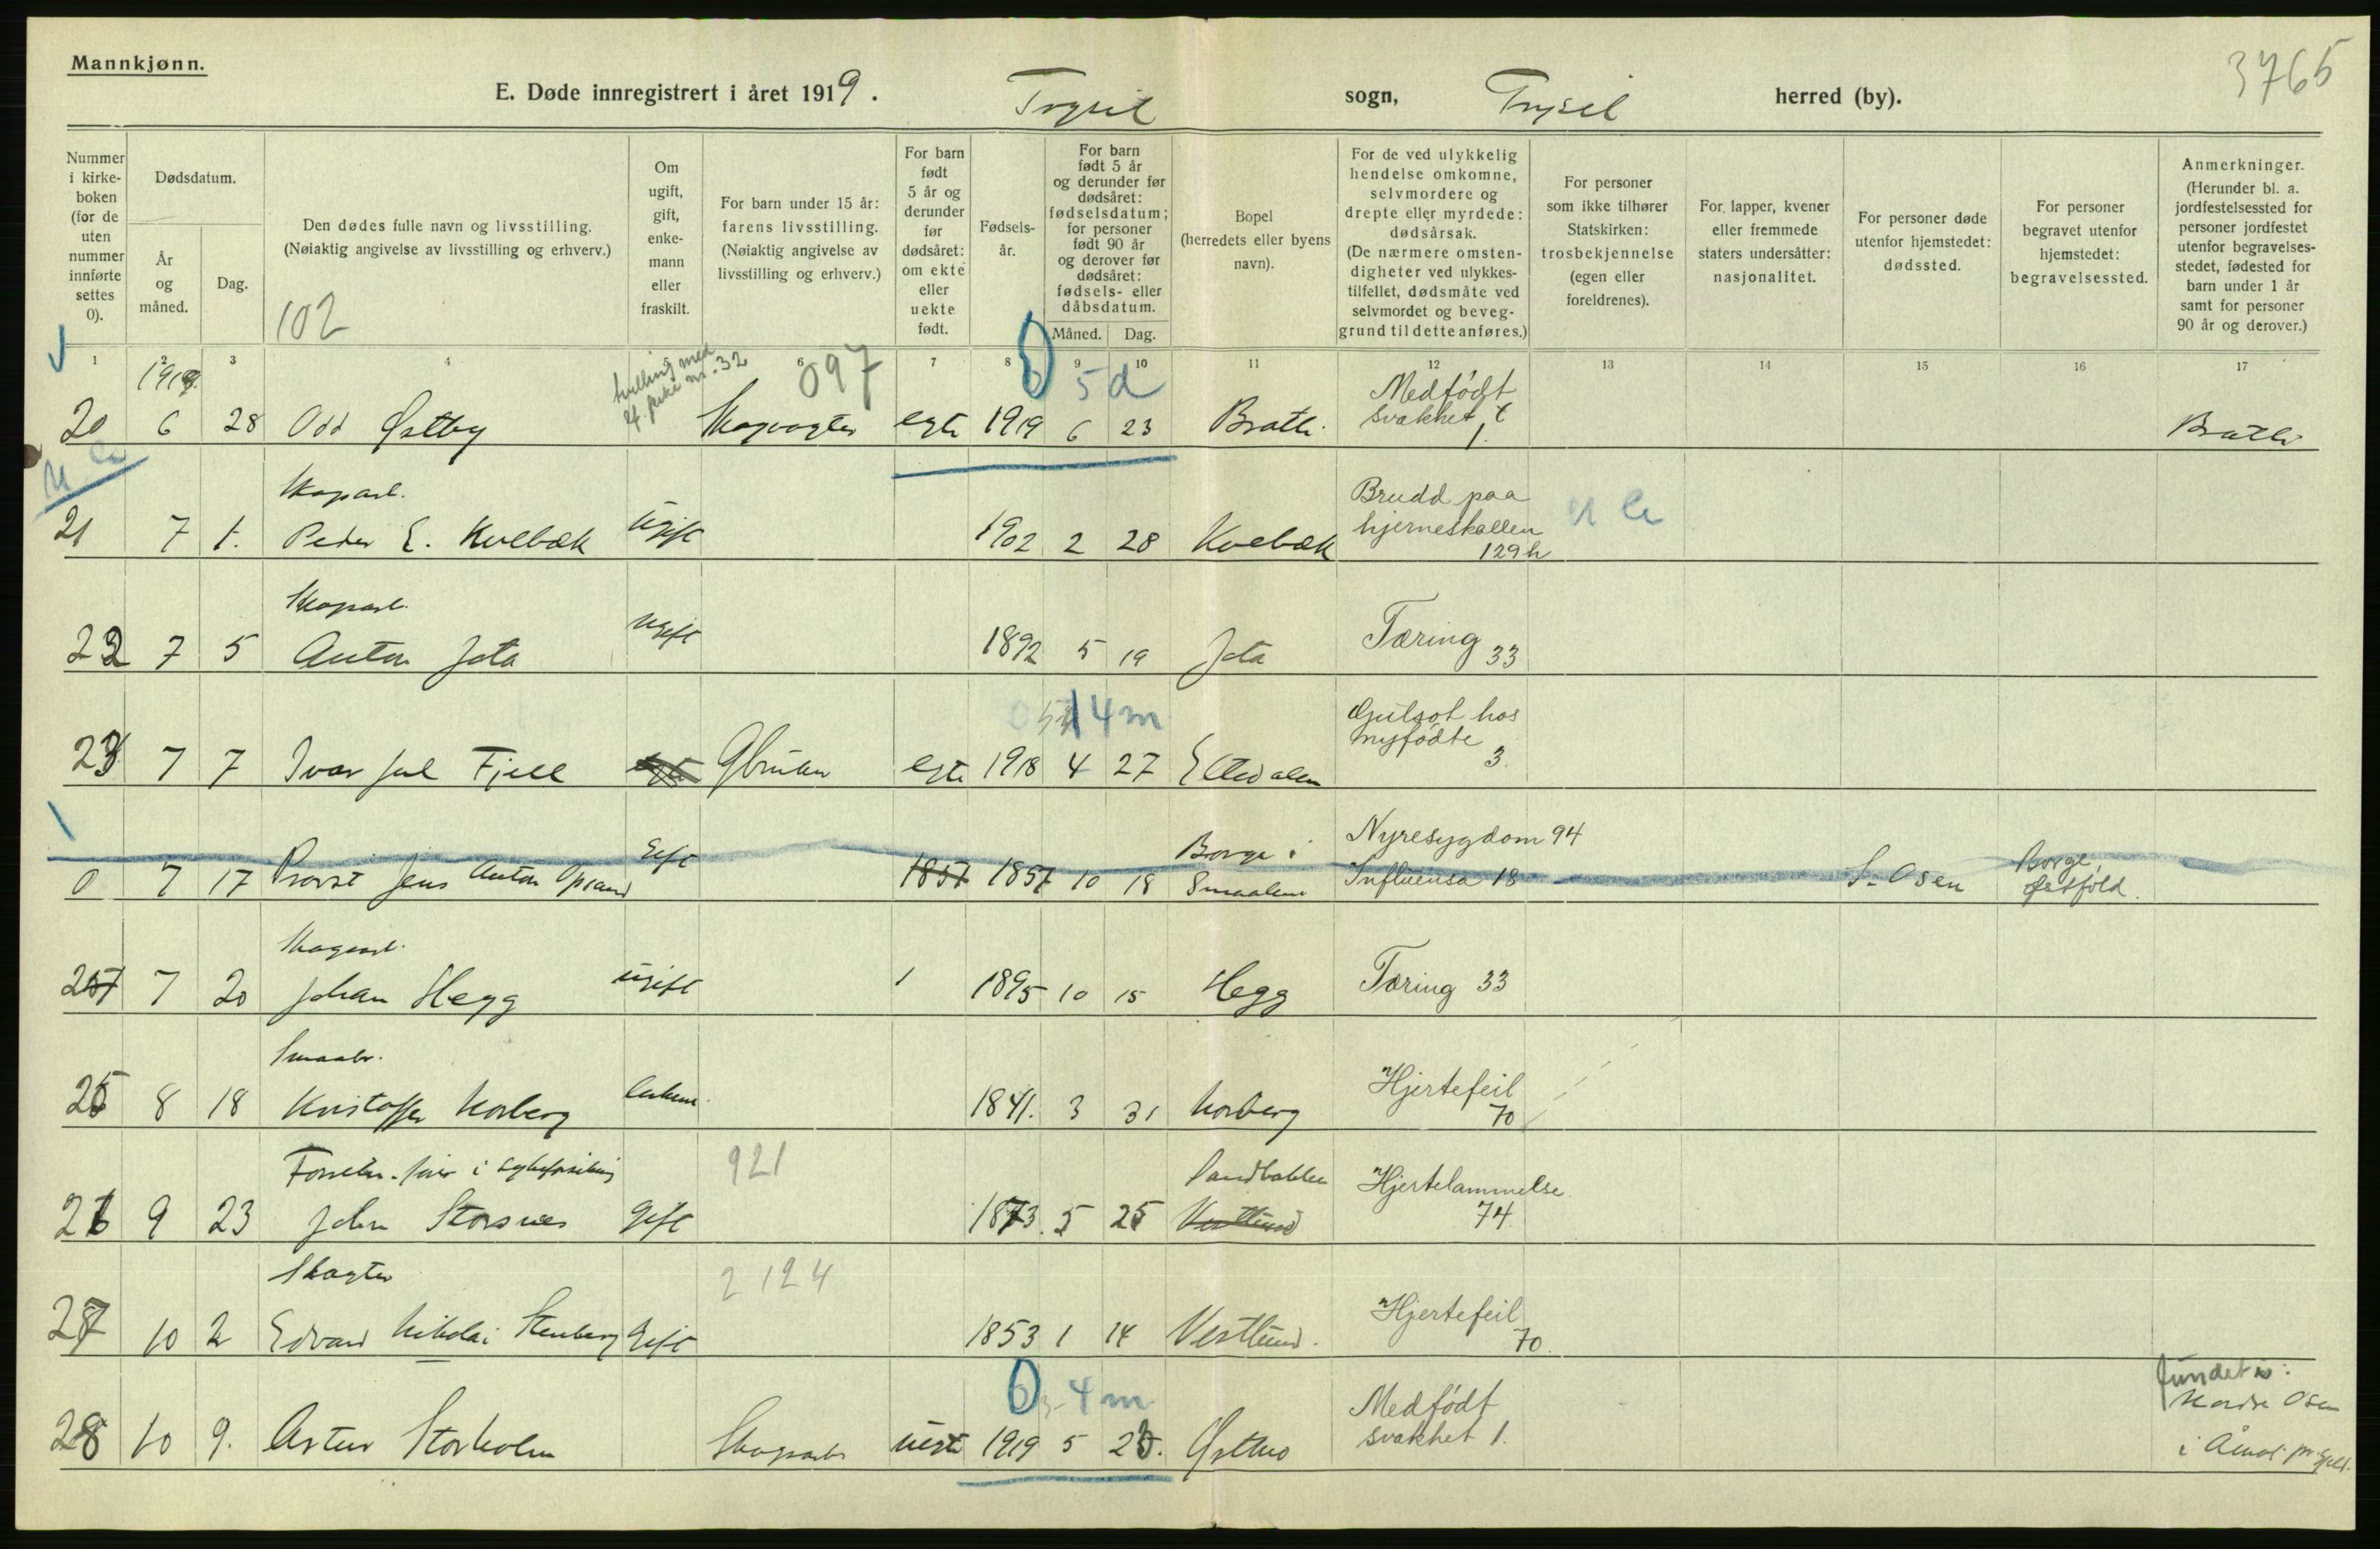 Mannkjønn.
3765
E. Døde innregistrert i året 1919. Trysil sogn, Trysil herred (by).
Nummer i kirke-boken (for de uten nummer innførte settes 0).
Dødsdatum.
År og måned.
Dag.
Den dødes fulle navn og livsstilling.
(Nøiaktig angivelse av livsstilling og erhverv.)
102
Om ugift, gift, enke-mann eller fraskilt.
For barn under 15 år: farens livsstilling.
(Nøiaktig angivelse av livsstilling og erhverv.)
For barn født 5 år og derunder før dødsåret: om ekte eller uekte født.
Fødsels-år.
For barn født 5 år og derunder før dødsåret: fødselsdatum; for personer født 90 år og derover før dødsåret: fødsels- eller dåbsdatum.
Måned. Dag.
Bopel
(herredets eller byens navn).
For de ved ulykkelig hendelse omkomne, selvmordere og drepte eller myrdede: dødsårsak.
(De nærmere omsten-digheter ved ulykkes-tilfellet, dødsmåte ved selvmordet og beveg-grund til dette anføres.)
For personer som ikke tilhører Statskirken: trosbekjennelse (egen eller foreldrenes).
For lapper, kvener eller fremmede staters undersåtter: nasjonalitet.
For personer døde utenfor hjemstedet: dødssted.
For personer begravet utenfor hjemstedet: begravelsessted.
Anmerkninger.
(Herunder bl. a. jordfestelsessted for personer jordfestet utenfor begravelses-stedet, fødested for barn under 1 år samt for personer 90 år og derover.)
1 2 3 4 5 6 7 8 9 10 11 12 13 14 15 16 17
1919 tvilling med 097 0 5 d Medfødt
20 6 28 Odd Østby egte 1919 6 23 Bratli svakhet 1. Bratli
Skogarb. Brudd paa
21 7 1. Peder E. Kvebæk ugift 1902 2 28 Kvebæk hjerneskallen
129 h
Skogarb.
22 7 5 Anton Jota ugift 1892 5 19 Jota Tæring 33
14 m Gulsot hos
23 7 7 Ivar Jul Fjell Gbruker egte 1918 4 27 Eltedalen nyfødte 3.
Gift Borge i Nyresygdom 94
0 7 17 Provst Jens Anton Opsand 1857 1857 10 18 Smaalene Influensa 18 S. Osen Borge, Østfold.
Skogarb.
24 7 20 Johan Hegg ugift 1 1895 10 15 Hegg Tæring 33
Smaabr.
25 8 18 Kristoffer Norberg enkem. 1841. 3 31 Norberg Hjertefeil 70
921 Sandbakken
26 9 23 John Storsnes gift 1873. 5 25 Vestlund Hjertelammelse. 74
2124
27 10 2 Edvard Nikolai Stenberg Gift 1853 1 14 Vestlund. Hjertefeil 70.
0 4 m Medfødt
28 10 9. Artur Storholm Skogsarb uegte 1919 5 Østmo svakhet 1.
Nordre Osen
i Åmot